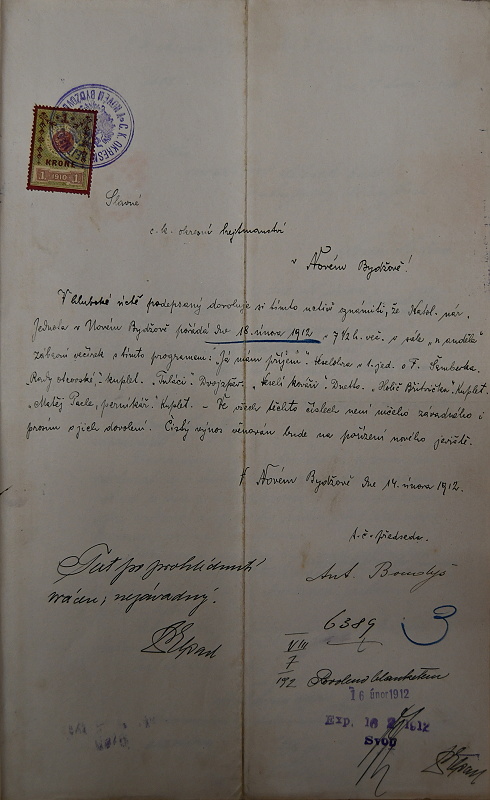 C. K. OKRES
NOVÉM BYDŽOV
1
KRONE
1 1910 1
Slavné
c. k. okresní hejtmanství
v Novém Bydžově!
V hluboké úctě podepsaný dovoluje si tímto uctivě oznámiti, že Katol. nár.
Jednota v Novém Bydžově pořádá dne 18. února 1912 o 7 1/2 h. več. v sále „u anděla"
zábavní večírek s tímto programem: „Já mám příjem". Veselohra v 1. jed. o F. Šamberka.
Rady otcovské," kuplet. „Tuláci." Dvojzpěv. „Veselí kováři". Duetto. „Holič Břitvička". Kuplet.
„Matěj Pacle, pernikář." Kuplet. – Ve všech těchto číslech není ničeho závadného i
prosím o jich dovolení. Čistý výnos věnován bude na pořízení nového jeviště.
V Novém Bydžově dne 14. února 1912.
t. č. předseda.
Ant.
Text po prohlédnutí
vrácen; nezávadný.
6389
3
VIII
7
192 Povoleno blanketem
16 únor 1912
Exp. 16 2 1912